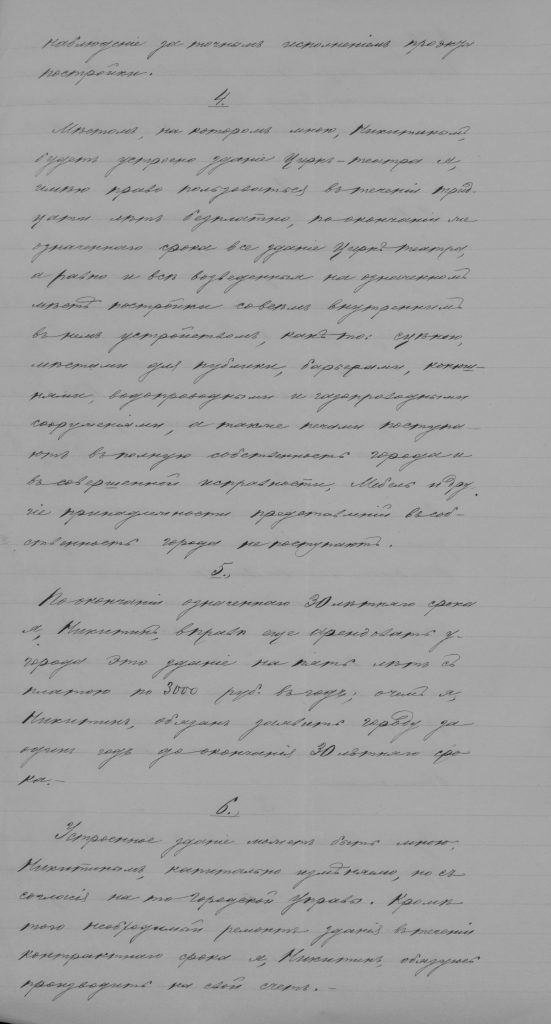 наблюденіе за точнымъ исполненіемъ проэкта
постройки.
4.
Мѣстомъ, на которомъ мною, Никитинымъ,
будетъ устроено зданіе Циркъ-театра я,
имѣю право пользоваться въ теченіи трид-
цати лѣтъ безплатно, по окончаніи же
означеннаго срока все зданіе Циркъ-театра,
а равно и всѣ возведенныя на означенномъ
мѣстѣ постройки совсѣмъ внутреннимъ
въ немъ устройствомъ, какъ то: сценою,
мѣстами для публики, барьерами, конюш-
нями, водопроводными и газопроводными
сооруженіями, а также печами поступа-
ютъ въ полную собственность города и
въ совершенной исправности. Мебель и дру-
гіе принадлежности представленій въ соб-
ственность города не поступаютъ.
5.
По окончаніи означеннаго 30 лѣтняго срока
я, Никитинъ, вправѣ еще арендовать у
города это зданіе на пять лѣтъ съ
платою по 3000 руб. въ годъ; о чемъ я,
Никитинъ, обязанъ заявить городу за
одинъ годъ до окончанія 30 лѣтняго сро
ка.-
6.
Устроенное зданіе можетъ быть мною,
Никитинымъ, капитально измѣняемо, но съ
согласія на то Городской Управы. Кромѣ
того необходимый ремонтъ зданія въ теченіи
контрактнаго срока я, Никитинъ, обязуюсь
производить на свой счетъ.-